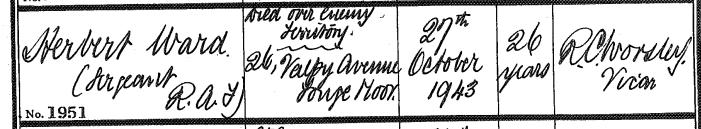 Herbert Ward.
(Sergeant
R.A.F)
No. 1951
Died over Enemy
Territory.
26, Valpy Avenue
Tonge Moor.
27th
October
1943
26
years
R.C. Worsley.
Vicar